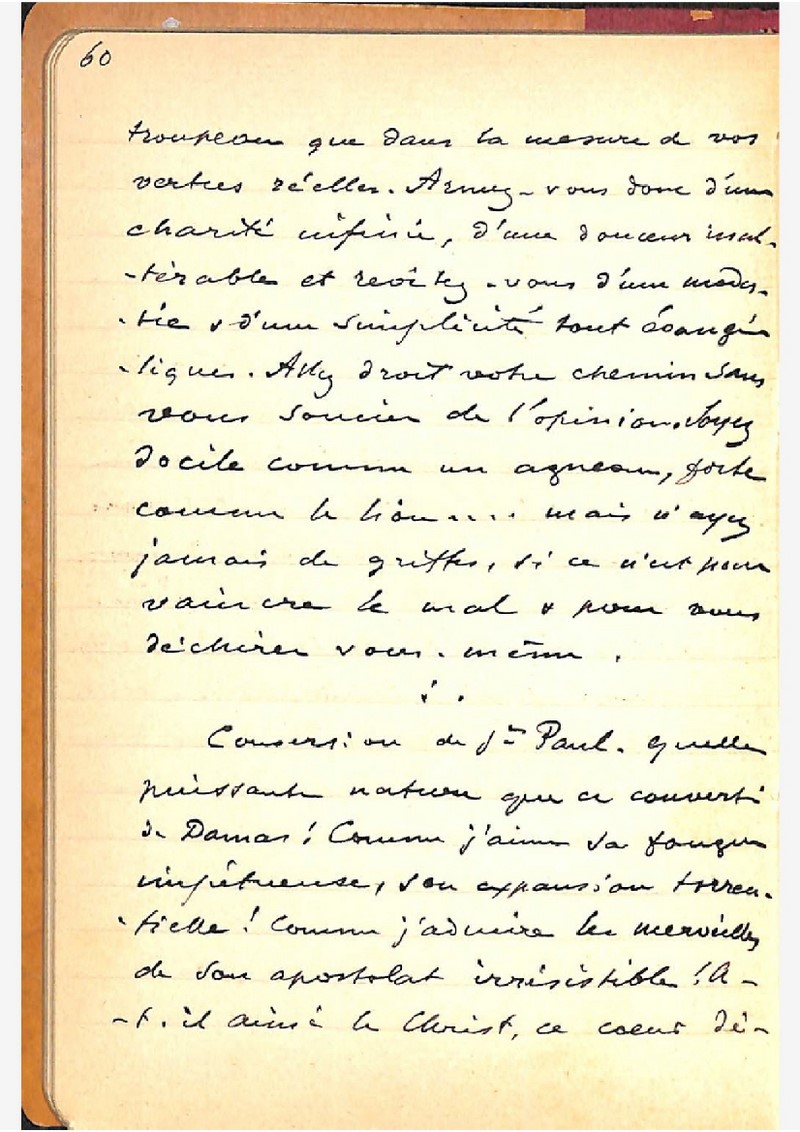 60
troupeau que dans la mesure de vos
vertus réelles. Armez-vous donc d'une
charité infinie, d'une douceur inal-
-térable et revêtez-vous d'une modes-
-tie & d'une simplicité tout évangé-
-liques. Allez droit votre chemin sans
vous soucier de l'opinion. Soyez
docile comme un agneau, forte
comme le lion.... mais n'ayez
jamais de griffes, si ce n'est pour
vaincre le mal & pour vous
déchirer vous-même.
Conversion de St Paul. Quelle
puissante nature que ce converti
de Damas! Comme j'aime sa fougue
impétueuse, son expansion torren-
-tielle! Comme j'admire les merveilles
de son apostolat irrésistible! A-
-t-il aimé le Christ, ce coeur dé-